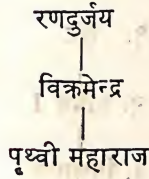 रणदुर्जय
विक्रमेन्द्र
पृथ्वी महाराज